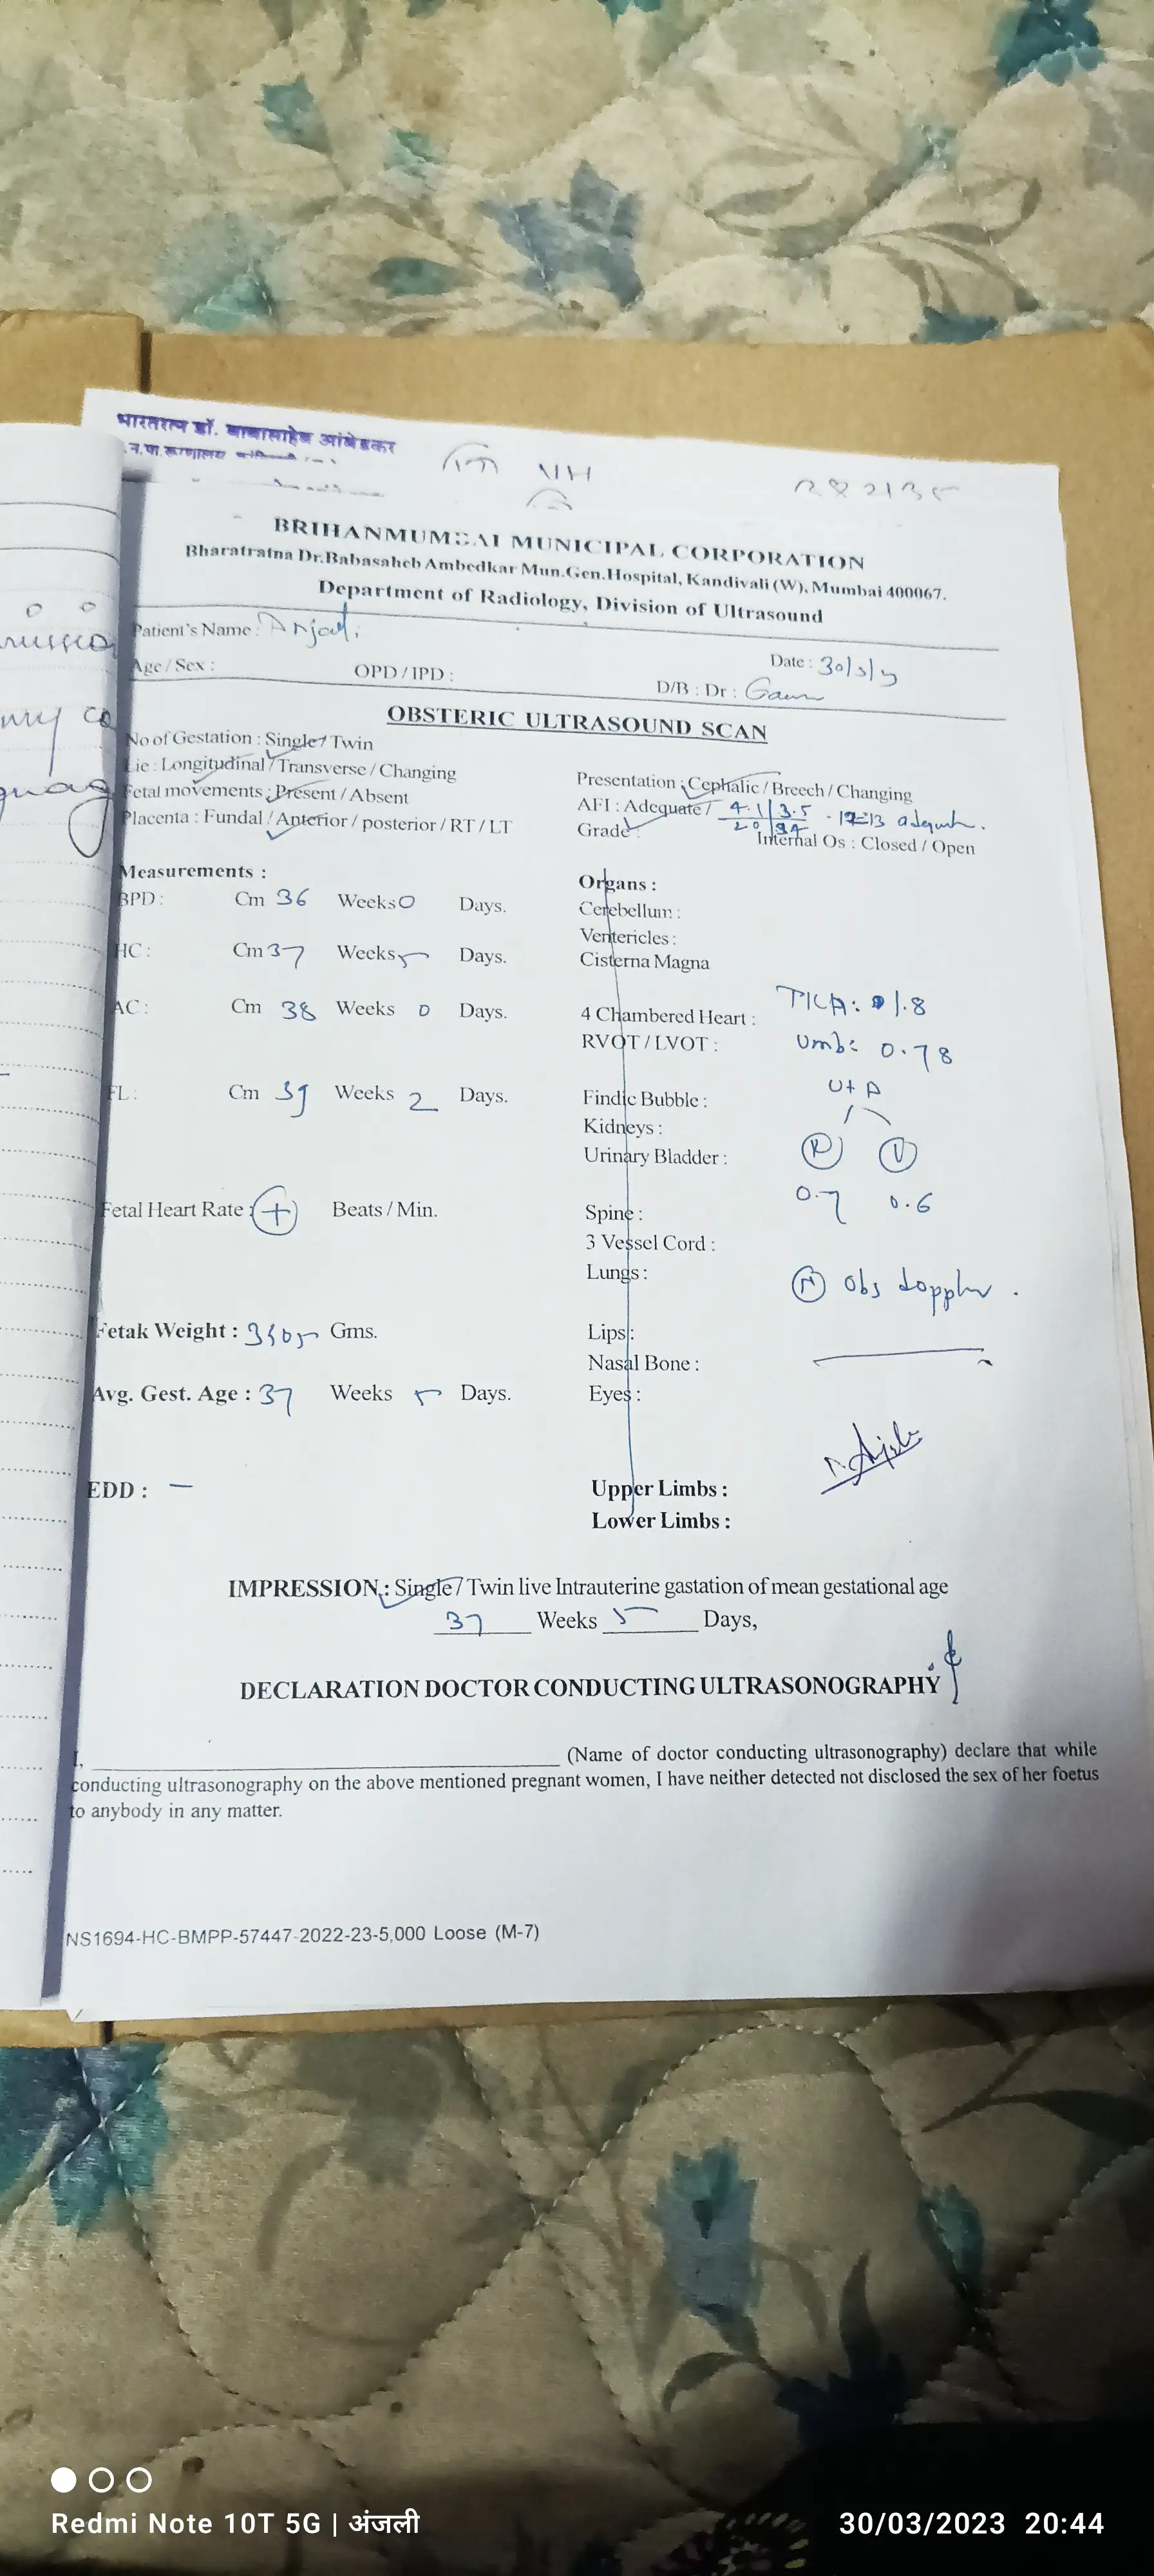 भारतरत्न डॉ. बाबासाहेब आंबेडकर
BRIHANMUMBAI MUNICIPAL CORPORATION
Bharatratna Dr.Babasaheb Ambedkar Mun.Gen.Hospital, Kandivali (W), Mumbai 400067.
Department of Radiology, Division of Ultrasound
Patient's Name : Anjali
Date : 30/3/
Age / Sex :
OPD / IPD :
D/B : Dr :
OBSTERIC ULTRASOUND SCAN
No of Gestation : Single / Twin
Lie : Longitudinal / Transverse / Changing
Presentation : Cephalic / Breech / Changing
Fetal movements : Present / Absent
AFI : Adequate / 4.1 3.5
Placenta : Fundal / Anterior / posterior / RT / LT
Grade :
Internal Os : Closed / Open
Measurements :
Organs :
BPD : Cm 36 Weeks 0 Days.
Cerebellum :
Ventericles :
HC : Cm 37 Weeks 5 Days.
Cisterna Magna
AC : Cm 38 Weeks 0 Days.
4 Chambered Heart :
1.8
RVOT / LVOT :
Umb: 0.78
FL : Cm 39 Weeks 2 Days.
Findic Bubble :
Ut A
Kidneys :
Urinary Bladder :
R
0.7 0.6
Fetal Heart Rate : + Beats / Min.
Spine :
3 Vessel Cord :
Lungs :
N Obs doppler.
Fetak Weight : Gms.
Lips :
Nasal Bone :
Avg. Gest. Age : 37 Weeks 5 Days.
Eyes :
EDD : —
Upper Limbs :
Lower Limbs :
IMPRESSION : Single / Twin live Intrauterine gastation of mean gestational age
37 Weeks 5 Days,
DECLARATION DOCTOR CONDUCTING ULTRASONOGRAPHY
I, (Name of doctor conducting ultrasonography) declare that while
conducting ultrasonography on the above mentioned pregnant women, I have neither detected not disclosed the sex of her foetus
to anybody in any matter.
NS1694-HC-BMPP-57447-2022-23-5,000 Loose (M-7)
Redmi Note 10T 5G | अंजली
30/03/2023 20:44